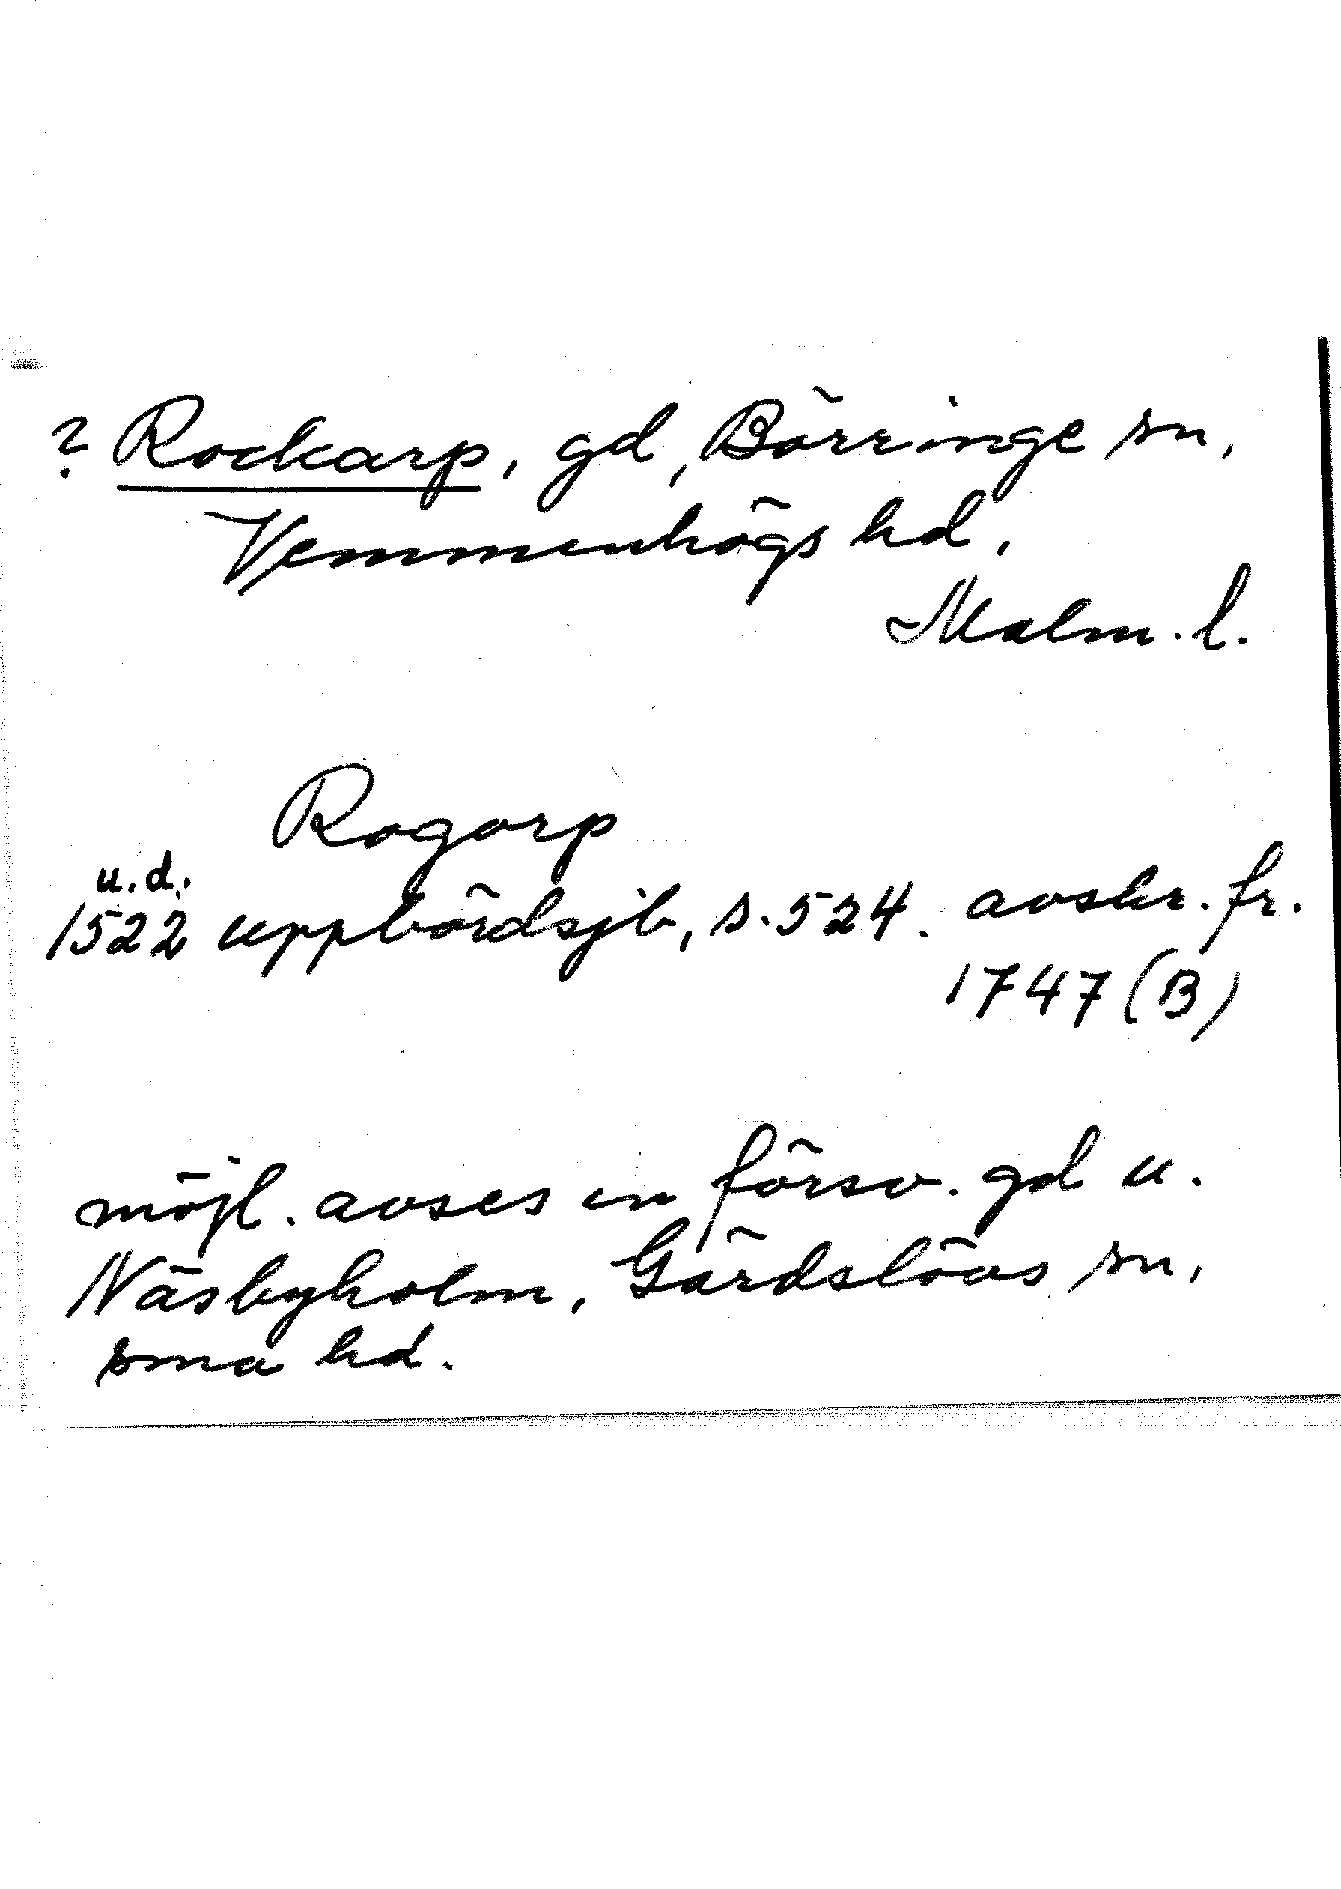 ? Rockarp, gd, Börringe sn,
Vemmenhögs hd,
Malm. l.
Rogorp
u.d.
1522 uppbördsjb, s. 524. avskr. fr.
1747 (B)
möjl. avses en försv. gd u.
Näsbyholm, Gärdslövs sn,
sma hd.